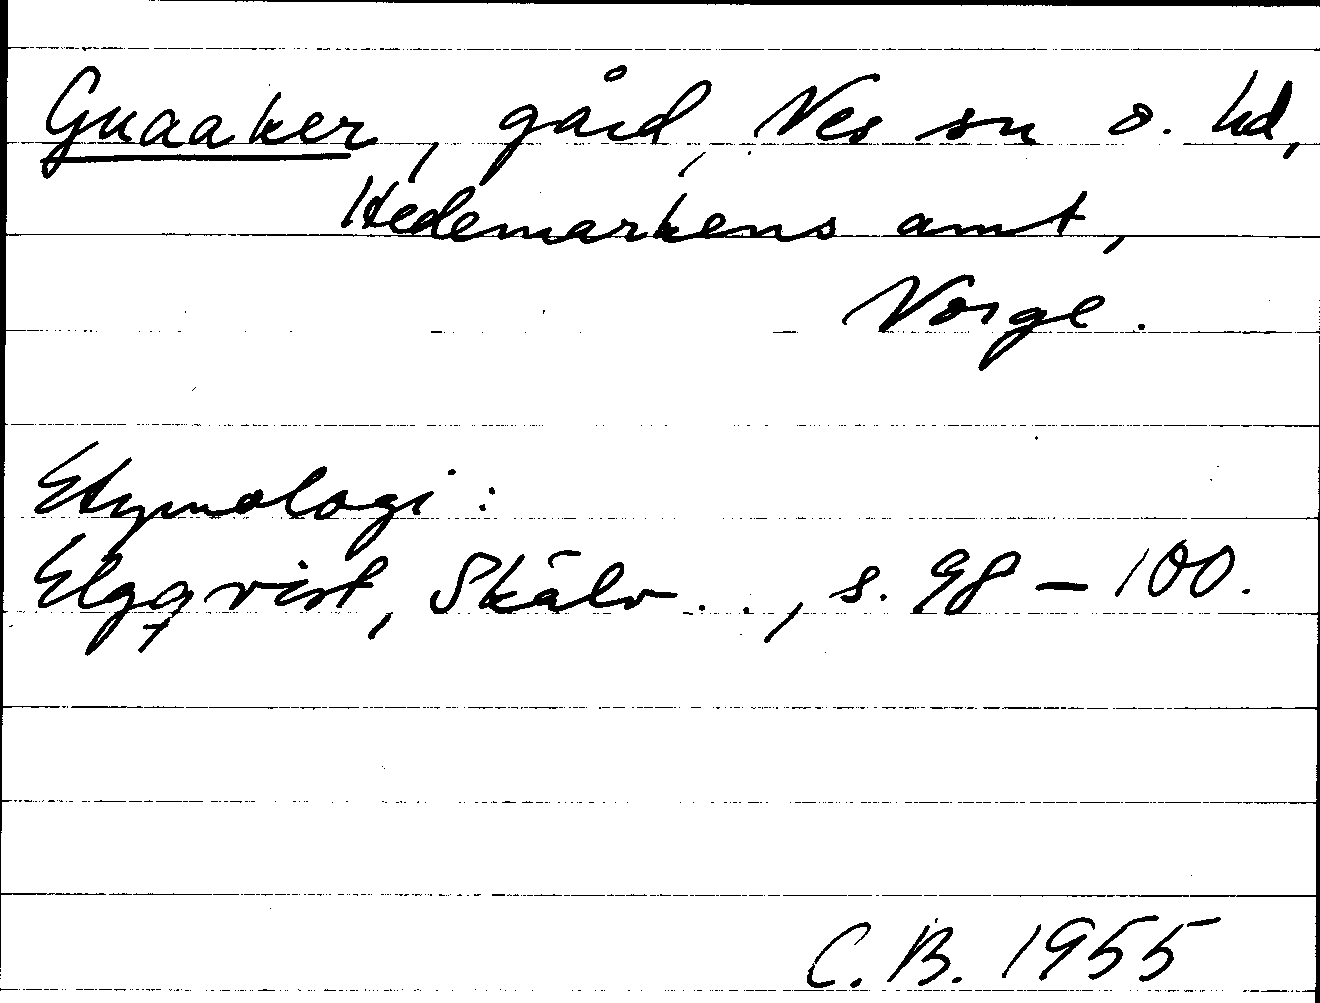 Gnaaker, gård, Nes sn o. hd,
Hedemarkens amt,
Norge.
Etymologi:
Elgqvist, Skälv..., s. 98 – 100.
C. B. 1955